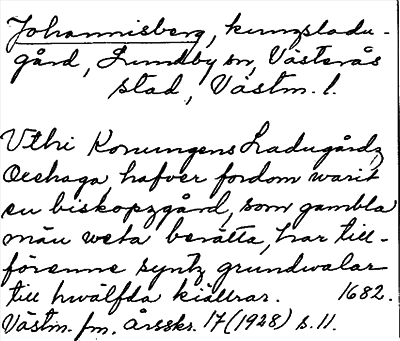 Johannisberg, kungsladu-
gård, Lundby sn, Västerås
stad, Västm. l.
Vthi Konungens Ladugårdz
Oeehaga, hafver fordom warit
en biskopzgård, som gambla
män weta berätta, har till-
förenne syntz grundwalar
till hwälfda kiällrar. 1682.
Västm. fm. årsskr. 17 (1928) s. 11.